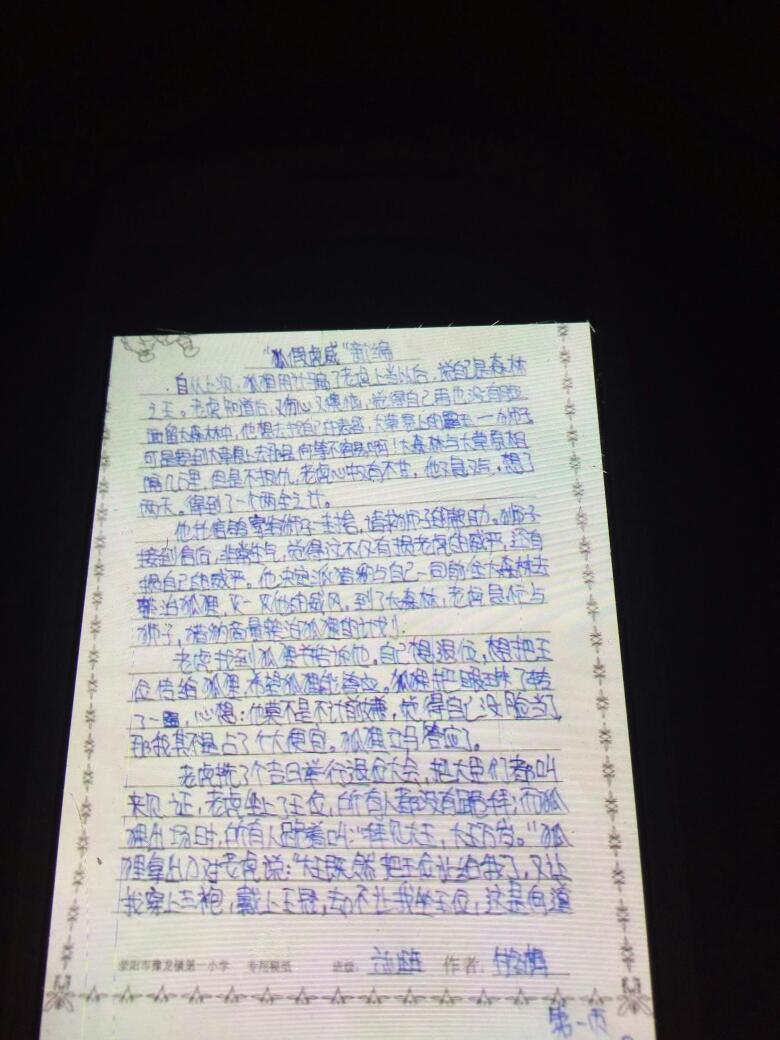 "狐假虎威"新编
自从上次,狐狸用计骗了老虎上当以后,说自己是森林
之王。老虎知道后,又伤心又懊恼,觉得自己再也没有脸
面留大森林中,他想去找自己的表哥,大草原上的霸王——狮子
可是要到大草原上去 何等不容易啊!大森林与大草原相
隔几万里,但是不报仇,老虎心中又有不甘,他又急又气,想了
两天。得到了一个两全之计。
他让信鸽寄给狮子一封信,请求狮子的帮助。狮子
接到信后,非常生气,觉得这不仅有损老虎的威严,还有
损自己的威严。他决定派猎豹与自己一同前往大森林去
整治狐狸,灭一灭他的威风,到了大森林,老虎急忙与
狮子,猎豹商量整治狐狸的计划!
老虎找到狐狸并告诉他。自己想退位,想把王
位传给狐狸,希望狐狸能答应。狐狸把眼珠子转
了一圈,心想:他莫不是不计前嫌,觉得自己没脸当了
那我岂不是占了个大便宜。狐狸立马答应了。
老虎挑了个吉日举行退位大会,把大臣们都叫
来见证,老虎坐上了王位,所有人都没有跪拜;而狐
狸出场时,所有人跪着叫:"拜见大王,大王万岁。"狐
狸拿出刀对老虎说:"大王既然把王位让给我了,又让
我穿上王袍,戴上王冠,却不让我坐王位,这是何道
荥阳市豫龙镇第一小学 专用稿纸 班级: 作者:
第一页